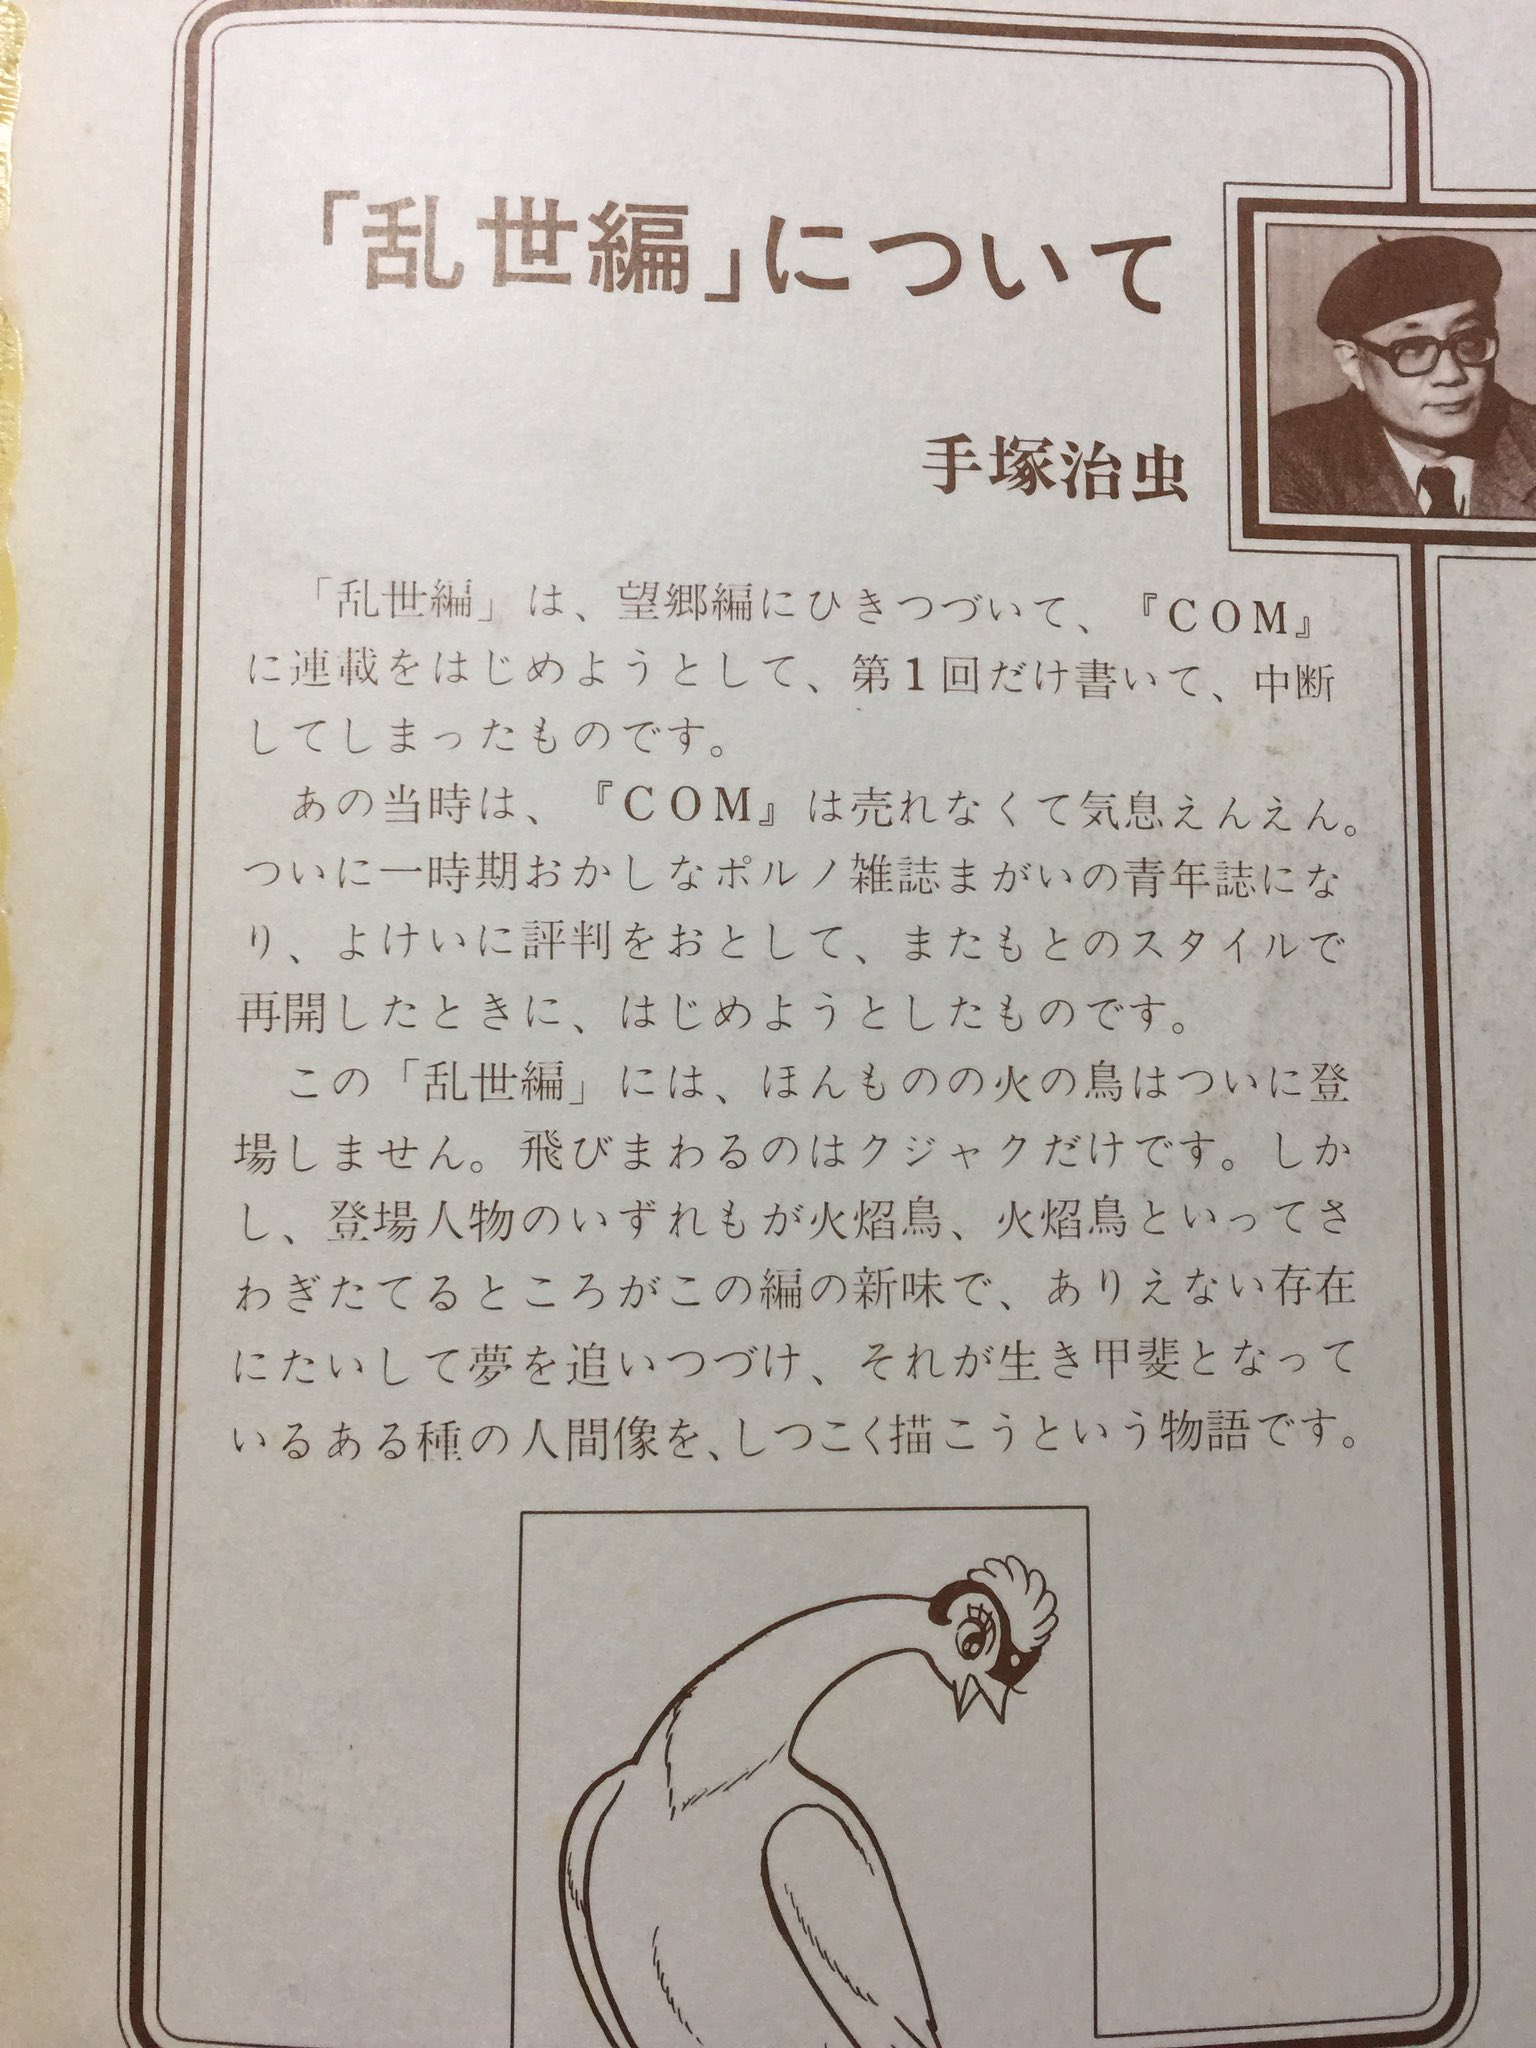 「乱世編」について
手塚治虫
「乱世編」は、望郷編にひきつづいて、『COM』
に連載をはじめようとして、第1回だけ書いて、中断
してしまったものです。
あの当時は、『COM』は売れなくて気息えんえん。
ついに一時期おかしなポルノ雑誌まがいの青年誌にな
り、よけいに評判をおとして、またもとのスタイルで
再開したときに、はじめようとしたものです。
この「乱世編」には、ほんものの火の鳥はついに登
場しません。飛びまわるのはクジャクだけです。しか
し、登場人物のいずれもが火焰鳥、火焰鳥といってさ
わぎたてるところがこの編の新味で、ありえない存在
にたいして夢を追いつづけ、それが生き甲斐となって
いるある種の人間像を、しつこく描こうという物語です。